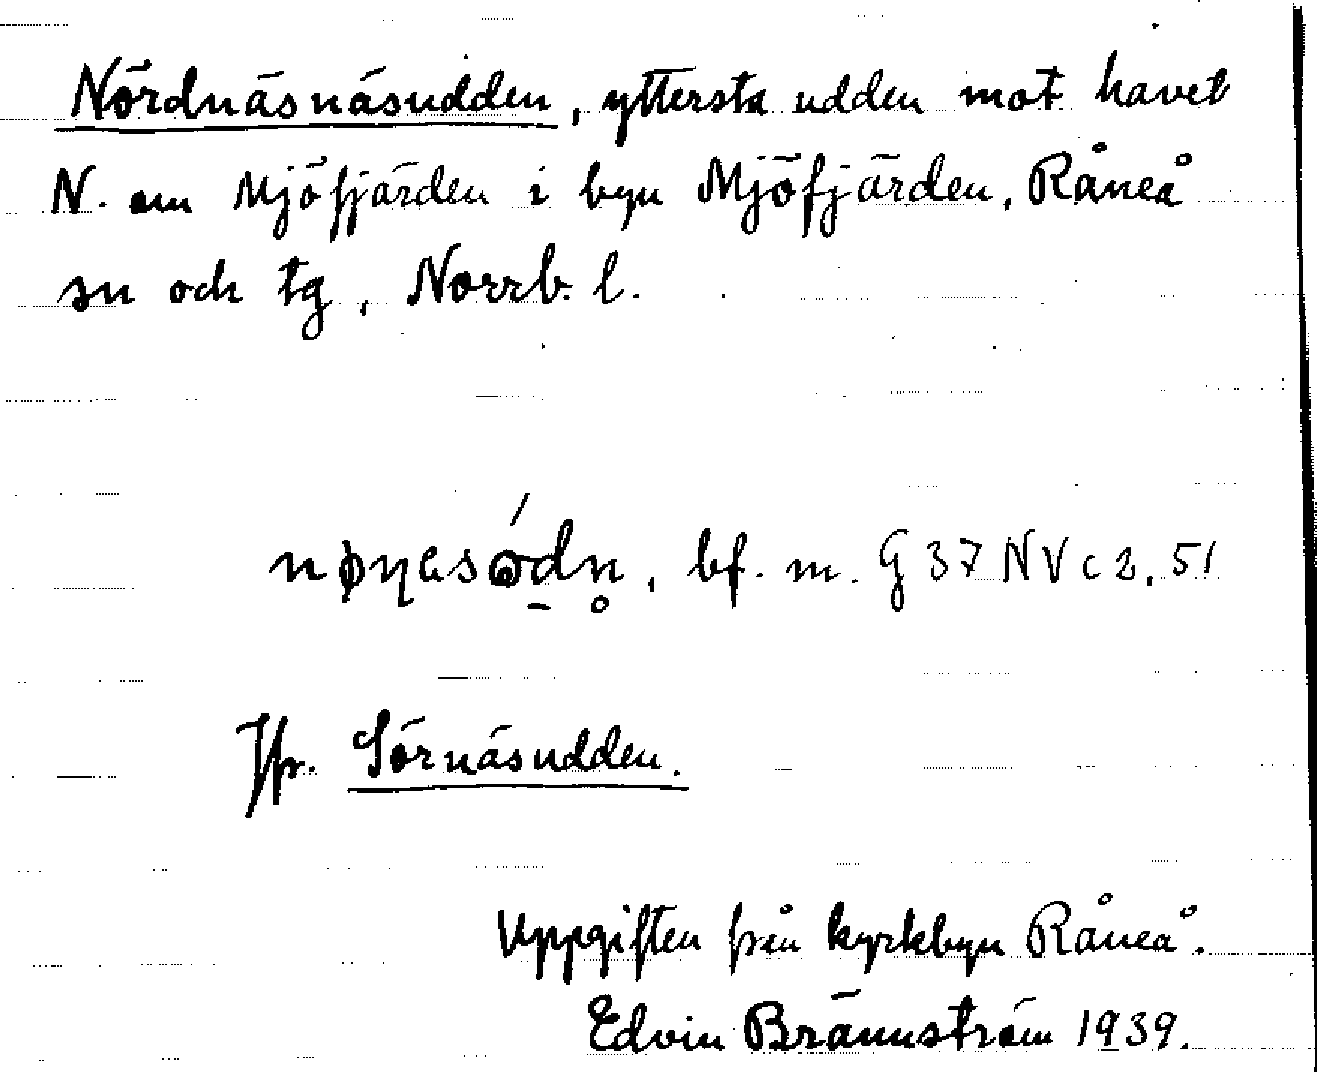 Nördnäsnäsudden, yttersta udden mot havet
N. om Mjöfjärden i byn Mjöfjärden, Råneå
sn och tg, Norrb. l.
bf. m. G 37 NV c 2, 51
Jfr. Sörnäsudden.
Uppgiften från kyrkbyn Råneå.
Edvin Brännström 1939.